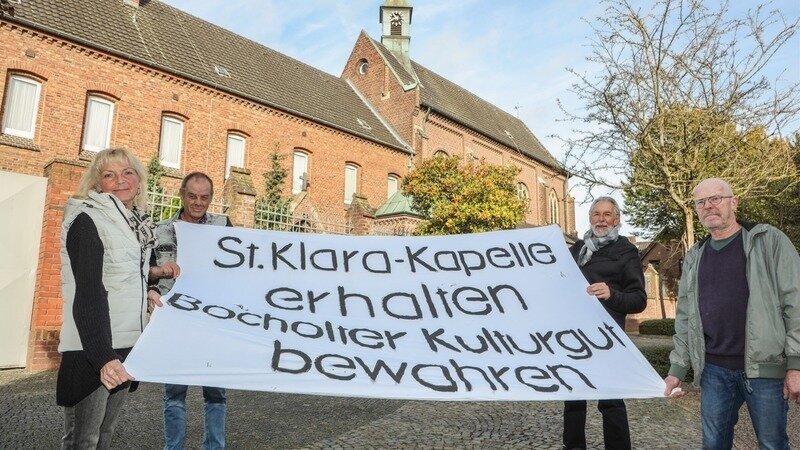 St.Klara-Kapelle
erhalten
Bocholter Kulturgut
bewahren